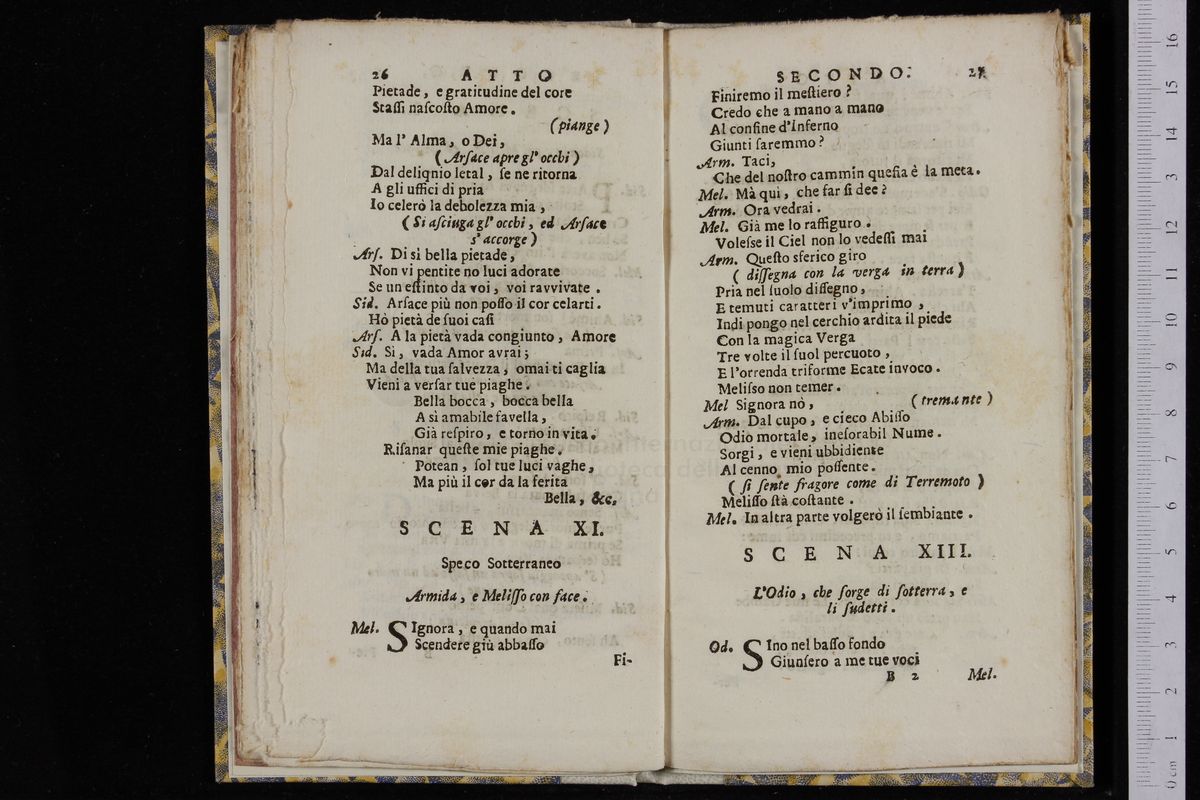 26 ATTO
Pietade, e gratitudine del core
Staſſi naſcoſto Amore.
(piange)
Ma l' Alma, o Dei,
(Arſace apre gl' occhi)
Dal deliqnio letal, ſe ne ritorna
A gli uffici di pria
Io celerò la debolezza mia,
(Si aſciuga gl' occhi, ed Arſace
s' accorge)
Arſ. Di sì bella pietade,
Non vi pentite no luci adorate
Se un eſtinto da voi, voi ravvivate.
Sid. Arſace più non poſſo il cor celarti.
Hò pietà de ſuoi caſi
Arſ. A la pietà vada congiunto, Amore
Sid. Sì, vada Amor avrai;
Ma della tua ſalvezza, omai ti caglia
Vieni a verſar tue piaghe.
Bella bocca, bocca bella
A sì amabile favella,
Già reſpiro, e torno in vita.
Riſanar queſte mie piaghe.
Potean, ſol tue luci vaghe,
Ma più il cor da la ferita
Bella, &c.
SCENA XI.
Speco Sotterraneo
Armida, e Meliſſo con face.
Mel. SIgnora, e quando mai
Scendere giù abbaſſo
Fi-
SECONDO. 27
Finiremo il meſtiero?
Credo che a mano a mano
Al confine d'Inferno
Giunti ſaremmo?
Arm. Taci,
Che del noſtro cammin queſta è la meta.
Mel. Mà qui, che far ſi dee?
Arm. Ora vedrai.
Mel. Già me lo raffiguro.
Voleſse il Ciel non lo vedeſſi mai
Arm. Queſto sferico giro
(diſſegna con la verga in terra)
Pria nel ſuolo diſſegno,
E temuti caratteri v'imprimo,
Indi pongo nel cerchio ardita il piede
Con la magica Verga
Tre volte il ſuol percuoto,
E l'orrenda triforme Ecate invoco.
Meliſso non temer.
Mel Signora nò, (tremante)
Arm. Dal cupo, e cieco Abiſſo
Odio mortale, ineſorabil Nume.
Sorgi, e vieni ubbidiente
Al cenno mio poſſente.
(ſi ſente fragore come di Terremoto)
Meliſſo ſtà coſtante.
Mel. In altra parte volgerò il ſembiante.
SCENA XIII.
L'Odio, che ſorge di ſotterra, e
li ſudetti.
Od. SIno nel baſſo fondo
Giunſero a me tue voci
B 2 Mel.